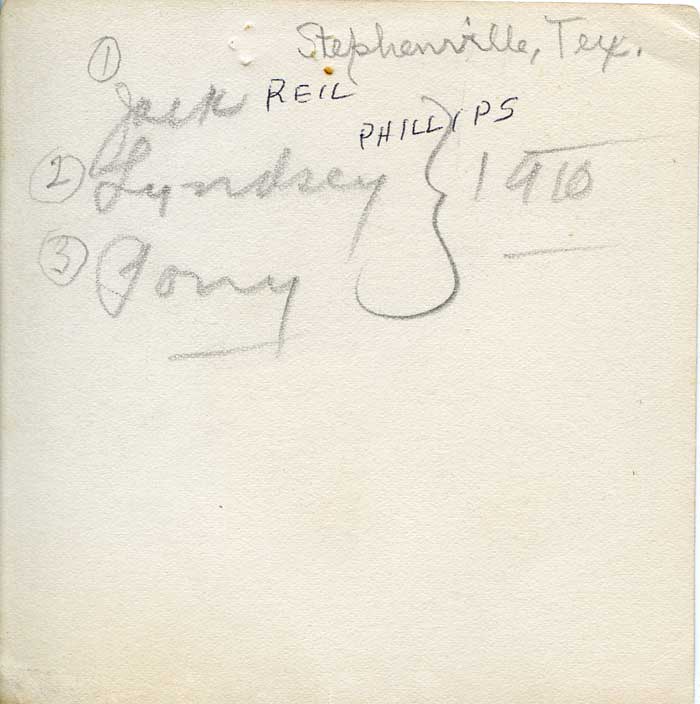 Stephenville, Tex.
① Jack REIL
PHILLIPS
② Lyndsey } 1910
③ Tony